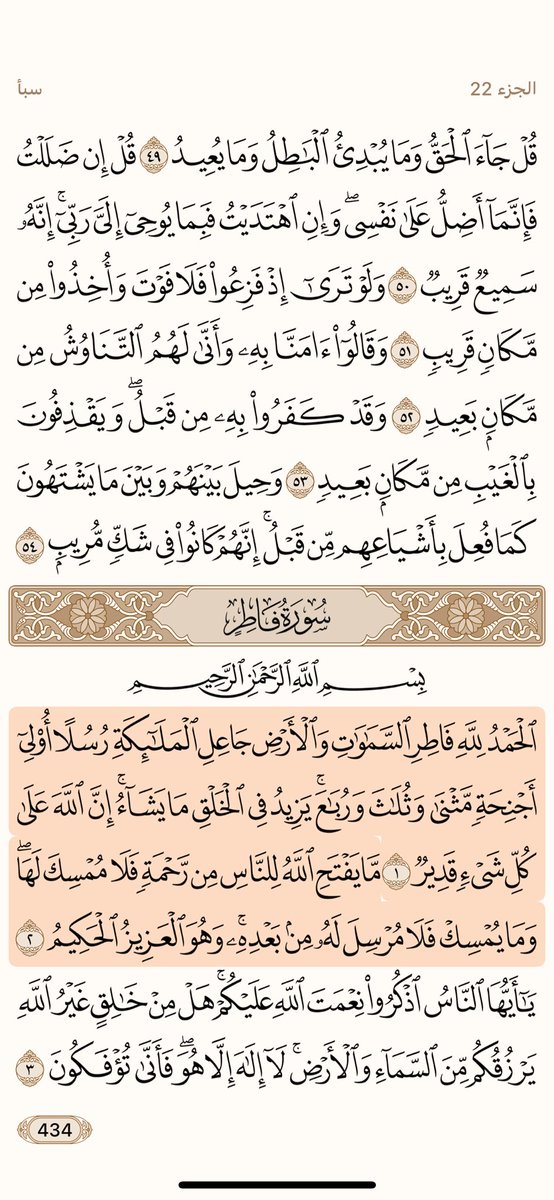 الجزء 22
سبأ
قُلْ جَآءَ ٱلْحَقُّ وَمَا يُبْدِئُ ٱلْبَٰطِلُ وَمَا يُعِيدُ ٤٩ قُلْ إِن ضَلَلْتُ
فَإِنَّمَآ أَضِلُّ عَلَىٰ نَفْسِى ۖ وَإِنِ ٱهْتَدَيْتُ فَبِمَا يُوحِىٓ إِلَىَّ رَبِّىٓ ۚ إِنَّهُۥ
سَمِيعٌ قَرِيبٌ ٥٠ وَلَوْ تَرَىٰٓ إِذْ فَزِعُوا۟ فَلَا فَوْتَ وَأُخِذُوا۟ مِن
مَّكَانٍ قَرِيبٍ ٥١ وَقَالُوٓا۟ ءَامَنَّا بِهِۦ وَأَنَّىٰ لَهُمُ ٱلتَّنَاوُشُ مِن
مَّكَانٍۭ بَعِيدٍ ٥٢ وَقَدْ كَفَرُوا۟ بِهِۦ مِن قَبْلُ ۖ وَيَقْذِفُونَ
بِٱلْغَيْبِ مِن مَّكَانٍۭ بَعِيدٍ ٥٣ وَحِيلَ بَيْنَهُمْ وَبَيْنَ مَا يَشْتَهُونَ
كَمَا فُعِلَ بِأَشْيَاعِهِم مِّن قَبْلُ ۚ إِنَّهُمْ كَانُوا۟ فِى شَكٍّ مُّرِيبٍۭ ٥٤
سُورَةُ فَاطِرٍ
بِسْمِ ٱللَّهِ ٱلرَّحْمَٰنِ ٱلرَّحِيمِ
ٱلْحَمْدُ لِلَّهِ فَاطِرِ ٱلسَّمَٰوَٰتِ وَٱلْأَرْضِ جَاعِلِ ٱلْمَلَٰٓئِكَةِ رُسُلًا أُو۟لِىٓ
أَجْنِحَةٍ مَّثْنَىٰ وَثُلَٰثَ وَرُبَٰعَ ۚ يَزِيدُ فِى ٱلْخَلْقِ مَا يَشَآءُ ۚ إِنَّ ٱللَّهَ عَلَىٰ
كُلِّ شَىْءٍ قَدِيرٌ ١ مَّا يَفْتَحِ ٱللَّهُ لِلنَّاسِ مِن رَّحْمَةٍ فَلَا مُمْسِكَ لَهَا ۖ
وَمَا يُمْسِكْ فَلَا مُرْسِلَ لَهُۥ مِنۢ بَعْدِهِۦ ۚ وَهُوَ ٱلْعَزِيزُ ٱلْحَكِيمُ ٢
يَٰٓأَيُّهَا ٱلنَّاسُ ٱذْكُرُوا۟ نِعْمَتَ ٱللَّهِ عَلَيْكُمْ ۚ هَلْ مِنْ خَٰلِقٍ غَيْرُ ٱللَّهِ
يَرْزُقُكُم مِّنَ ٱلسَّمَآءِ وَٱلْأَرْضِ ۚ لَآ إِلَٰهَ إِلَّا هُوَ ۖ فَأَنَّىٰ تُؤْفَكُونَ ٣
434